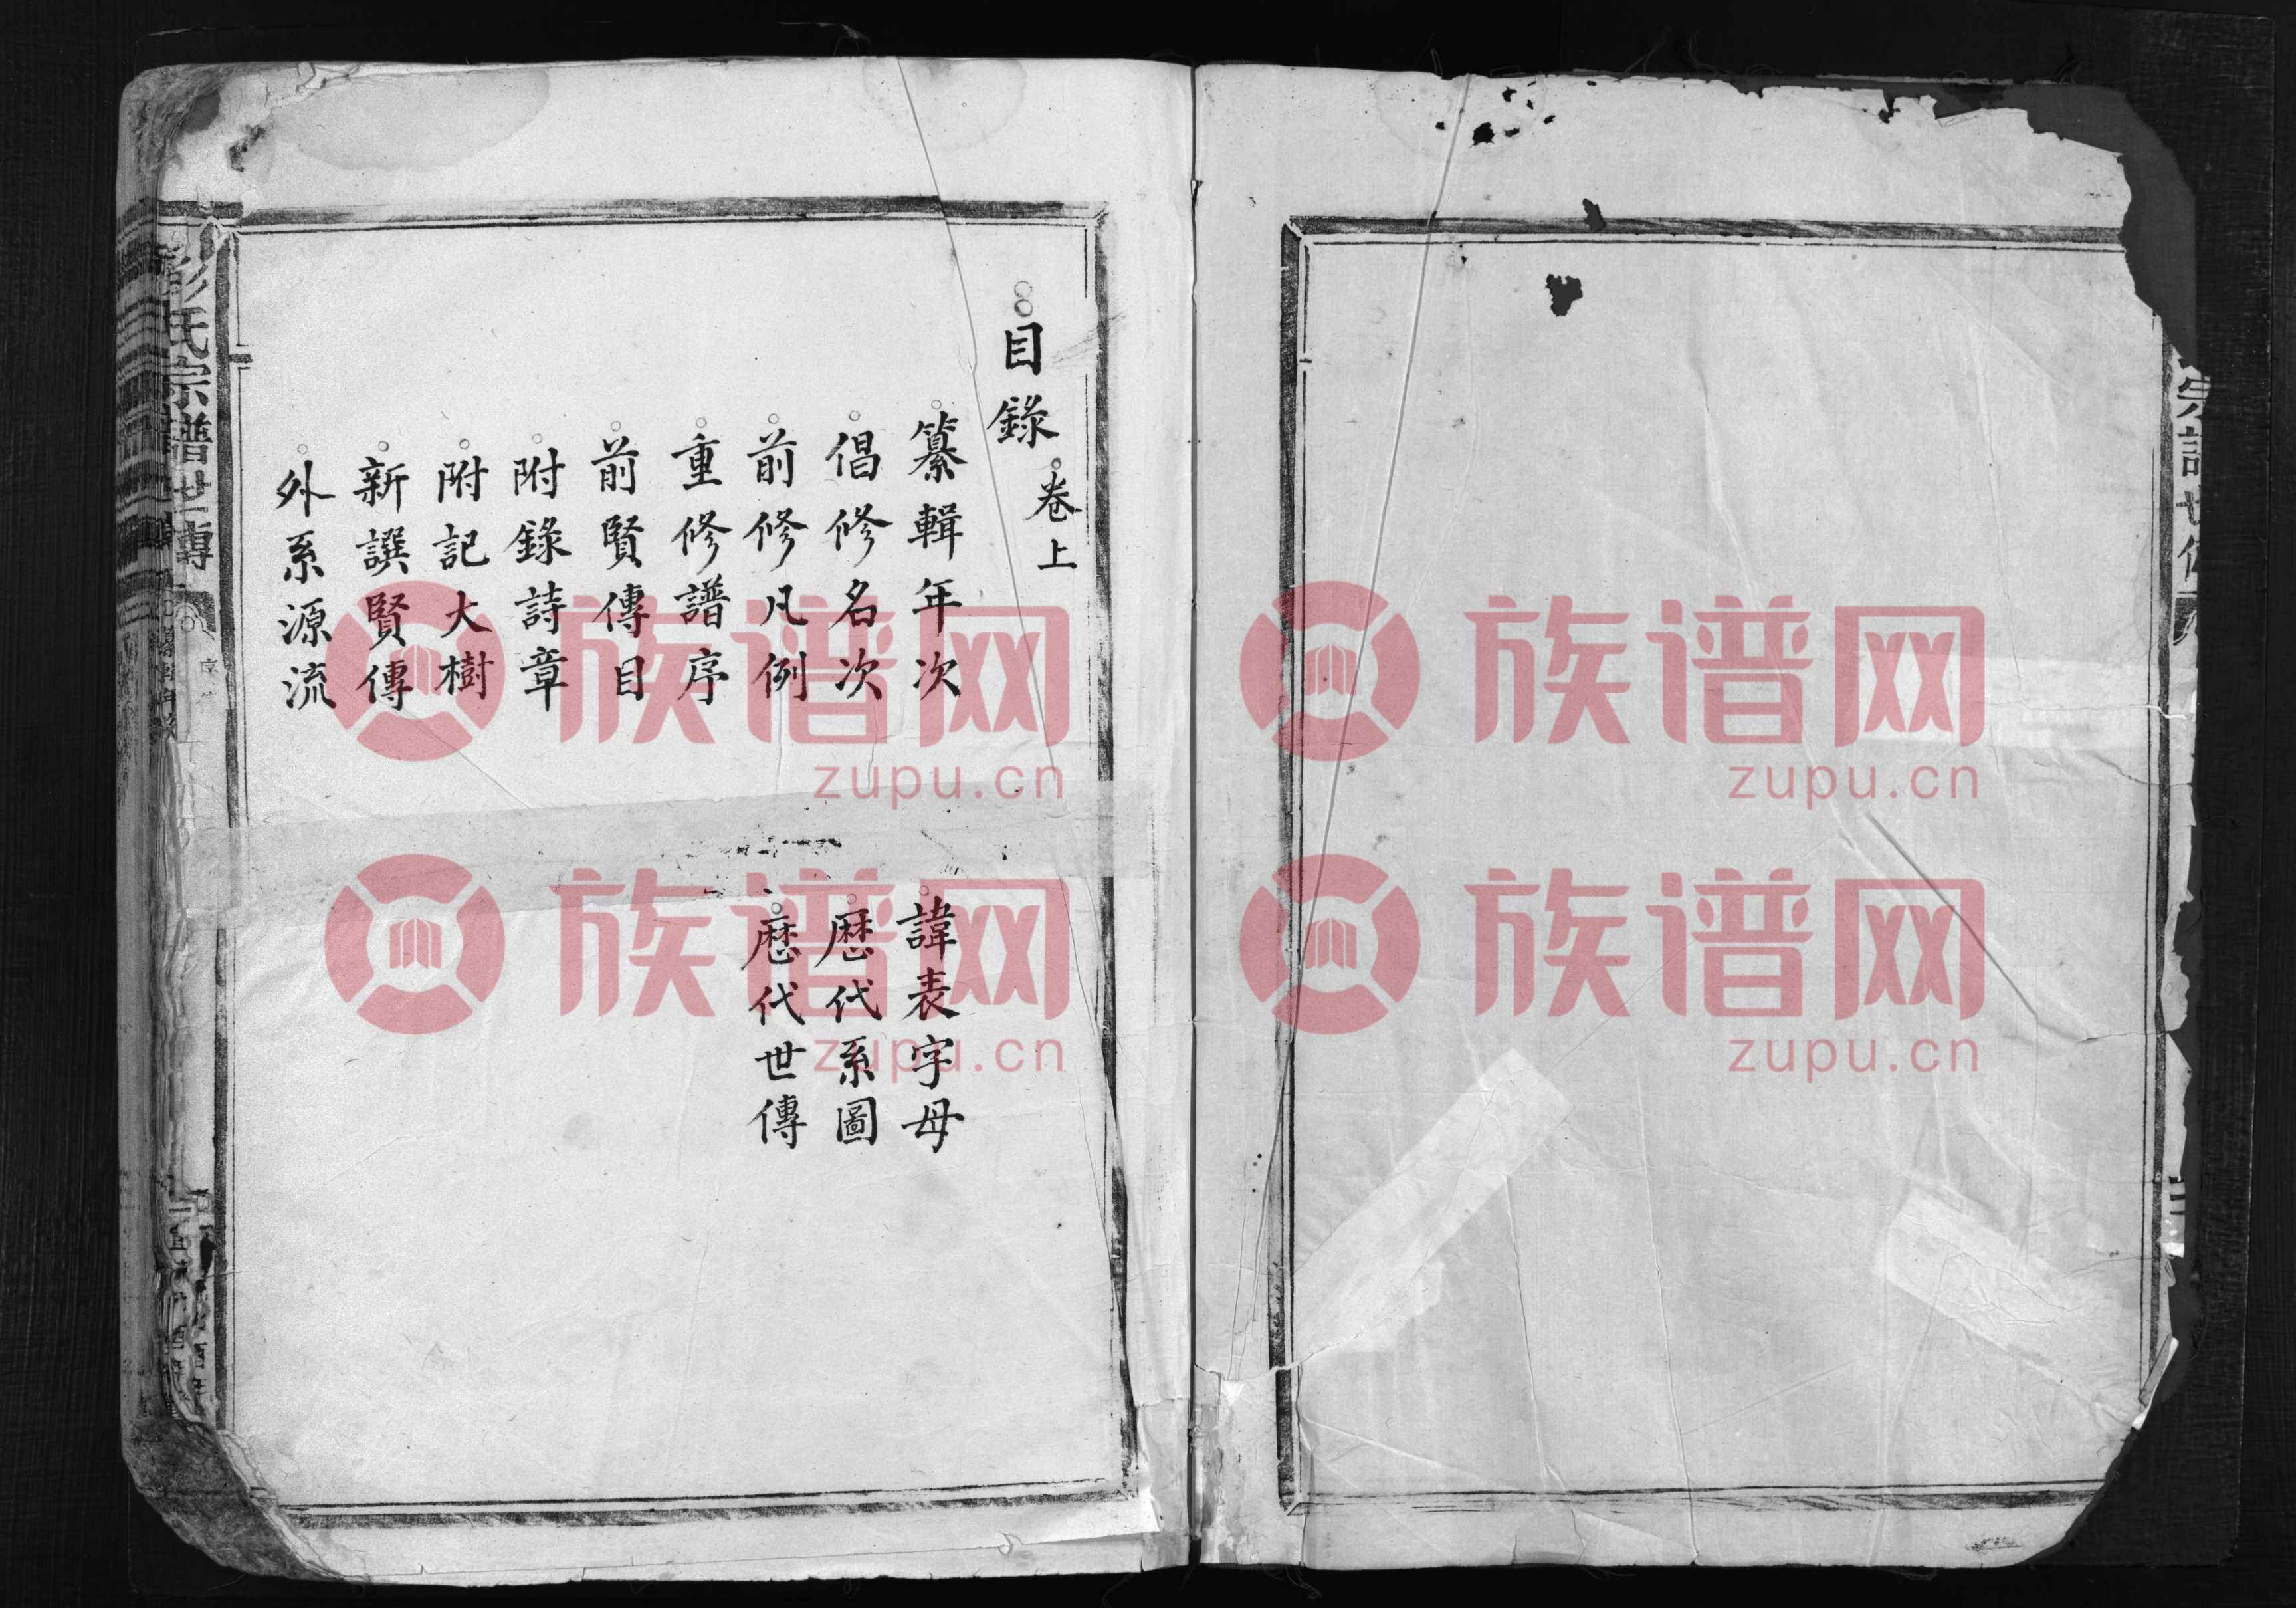 目錄 卷上
纂輯年次
倡修名次
前修凡例
重修譜序
前賢傳目
附錄詩章
附記大樹
新譔賢傳
外系源流
諱表字母
歷代系圖
歷代世傳
彭氏宗譜世傳
族谱网
zupu.cn
族谱网
zupu.cn
族谱网
zupu.cn
族谱网
zupu.cn